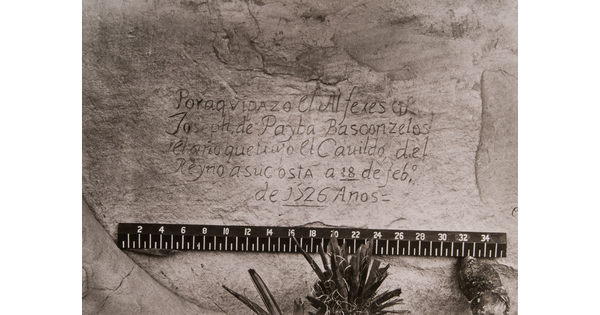 Por aqui pazo el Alferes Dn
Joseph de Payba Basconzelos
el año que trujo el Cauildo, del
Reyno a su costa a 18 de feb,º
de 1526 Años=
2 4 6 8 10 12 14 16 18 20 22 24 26 28 30 32 34